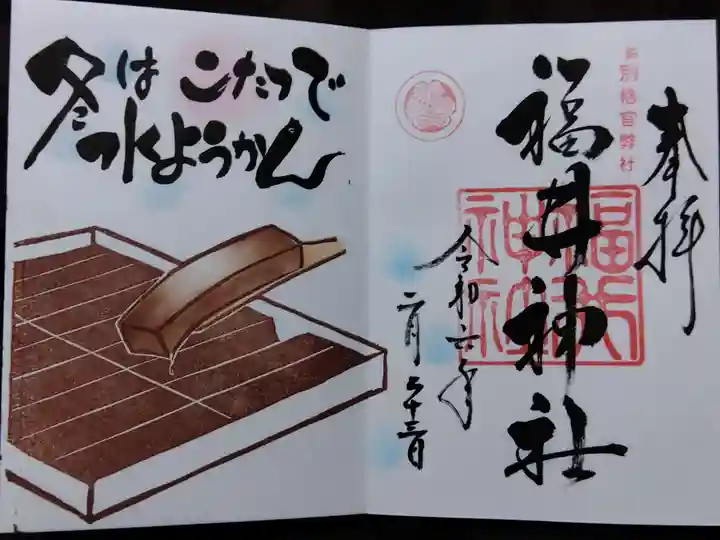 冬はこたつで
水ようかん
奉拝
別格官幣社
福井神社
福井神社
令和六年
二月二十三日